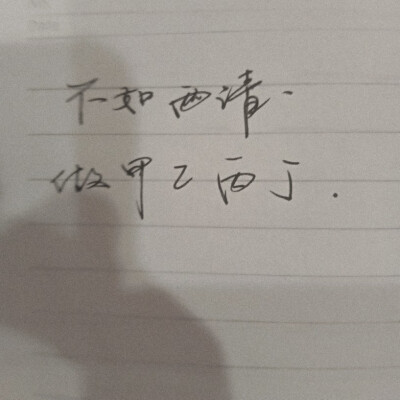 不如两清.
做甲乙丙丁.